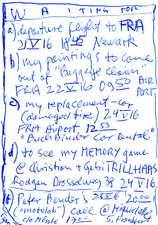 WAITING FOR
a) departure flight to FRA
21 V 16 18:45 Newark
b) my paintings to come
out of "Baggage Claim"
FRA 22 V 16 09 50 AIR
PORT
c) my replacement-car
(damaged tire) 24 V 16
FRA Airport, 12 53
"Buchbinder Car Rental"
d) to see my MEMORY game
@ Christian + Gabi TRILLHAAS
Rodgau Drosselweg 38 24 V 16
Peter Bender's 25 V 16 20:00
("mototabi") Cave @
17:00 Frankfurt